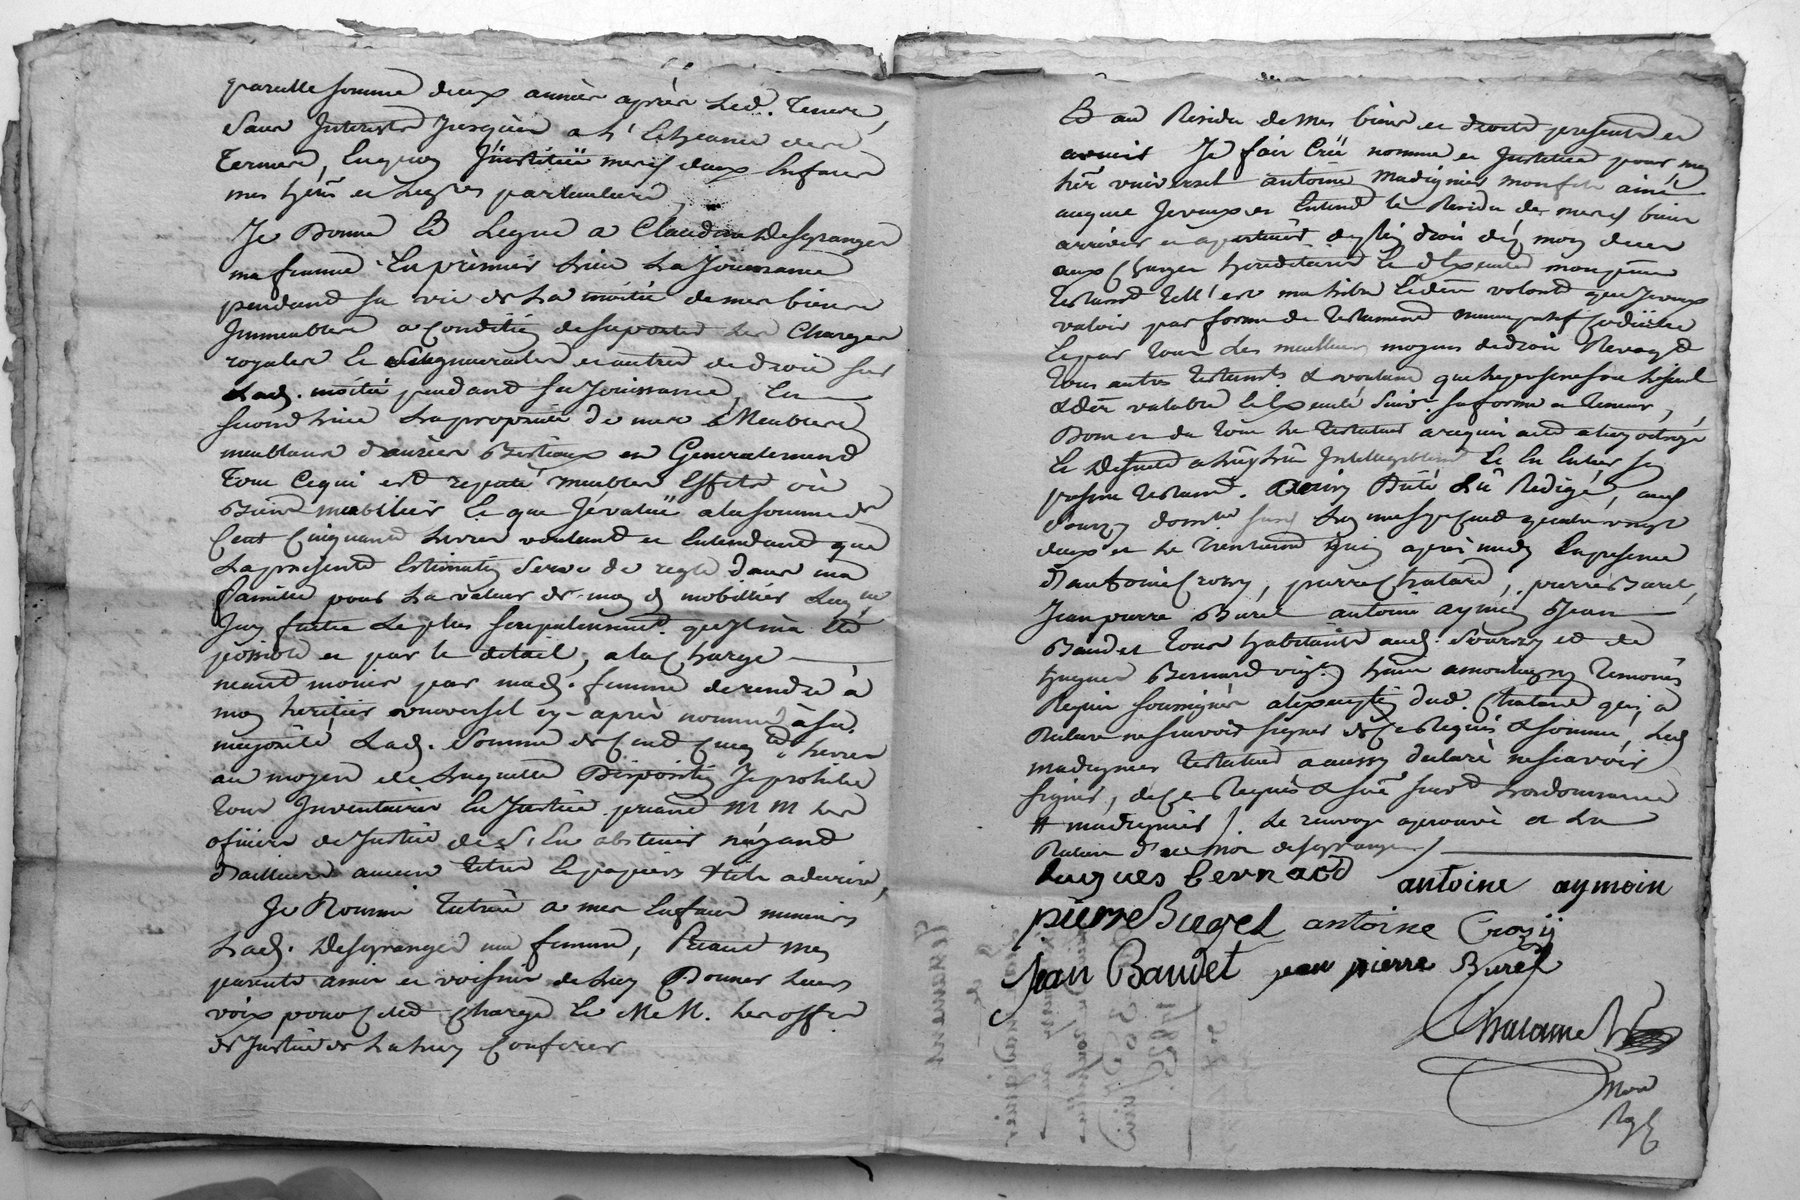 pareille somme deux années après led. terme,
sans Interests Jusques a l'Echeance dud.
terme, En quoy J'institue mesd. deux Enfans
mes hérs et Legres particuliers
Je Donne Et Legue a Claudine Desgranges
ma femme En prèmier Lieu La Jouissance
pendant sa vie de La moitié de mes biens
Immeubles a Condition de suporter Les Charges
royales Et seigneuriales et autres de droit sur
Lad. moitié pendant sa Jouissance, En
second Lieu La proprieté de mes Meubles
meublans danrées Bestiaux et Generalement
tout Cequi est reputé meubles Effets où
Biens mobiliers Et que J'évalue a la somme de
Cent Cinquante Livres voulant et Entendant que
La présente Estimation serve de regle dans ma
famille pour La valeur de mon d. mobillier
Jay faite Le plus scrupuleusement quil m'a Eté
possible et par le detail, a la Charge
neantmoins par mad. femme de rendre à
mon heritier universel cy-après nommé à sa
majorité Lad. somme de Cent Cinqte Livres
au moyen de Laquelle Disposition Je prohibe
tous Inventaires En Justice priant MM Les
officiers de Justice de s'En abstenir n'ayant
d'ailleurs aucuns titres Et papiers utile a decrire,
Je Nomme tutrice a mes Enfans mineurs
Lad. Desgranges ma femme, Priant mes
parents amis et voisins de Luy Donner Leurs
voix pour Cette Charge Et MM. Les offrs
de Justice de La Luy Conferer
Et au Residu de mes biens et droits presents et
avenir Je fais Créé nomme et Institue pour mon
hér universel antoine Madignier mon fils ainé
auquel Je veux et Entend le Residu de mesd. biens
arriver et apartenir de plein droit dès mon deces
aux Charges hereditaires Et d'Executer mon present
testament tell'est ma libre Et dre volonté que Je veux
valoir par forme de testament nuncupatif Codicille
Et par tous Les meilleurs moyens de droit Revoqt
tous autres testamts voulant que le present soit Le seul
& der valable Et Executé suivt sa forme et teneur,
Dont et du tout Le testateur a requis acte a luy octroyé
Et Desuite a Luy Lu Intelligiblemt Et En Entier son
present testamt. Ainsy Dicté Lu Redigé, aud.
sourcy domle Lan mil sept Cent quatre vingt
deux et Le trentieme Juin après midy En presence
d'antoine Crozy, pierre Chatard, pierre Burel,
Jean pierre Burel antoine aymoin Jean
Baudet tous habitants aud. Sourcy et de
hugues Bernard vigon habt a montagny temoins
Requis soussignés a l'exception dud. Chatard qui a
Déclare ne scavoir signer de Ce Requis & sommé, Led.
madignier testateur a aussy declaré ne scavoir
signer, de Ce Requis & somé suivt Lordonnance
# madignier /. Le renvoye aprouvé et La
Rature d'un mot desgranges /.
hugues bernard antoine aymoin
pierre Burel antoine Crozÿ
jean Baudet jean pierre Burel
Notre
Ryl